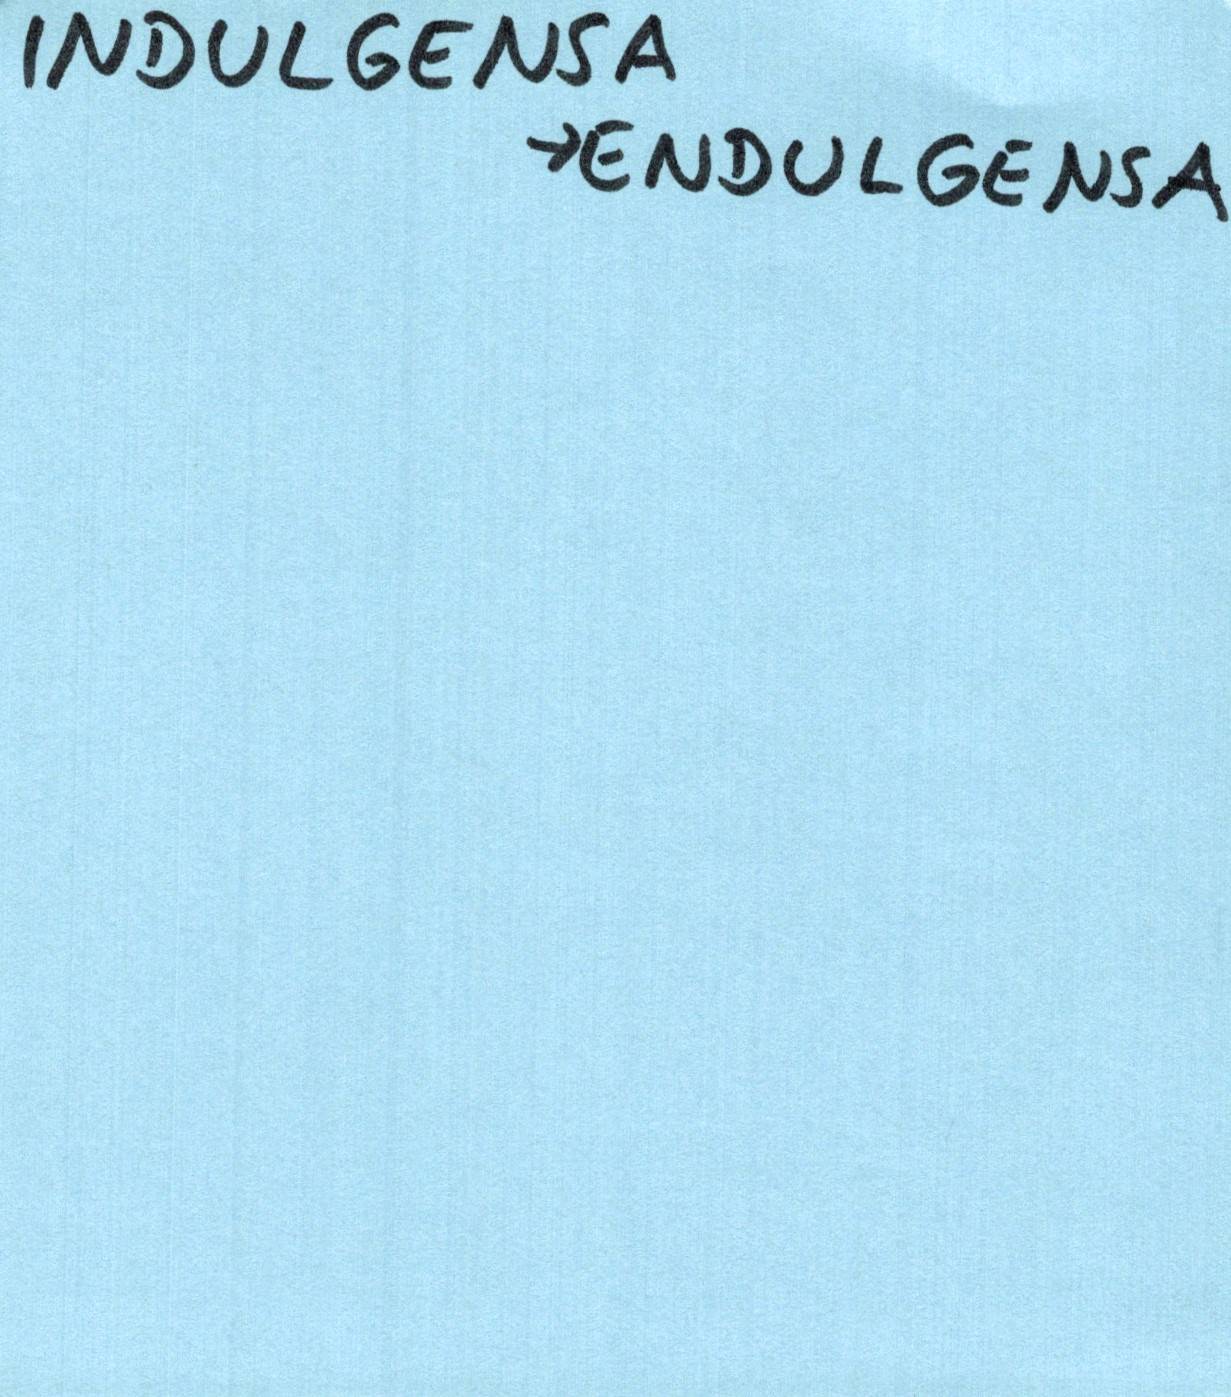 INDULGENSA
→ENDULGENSA